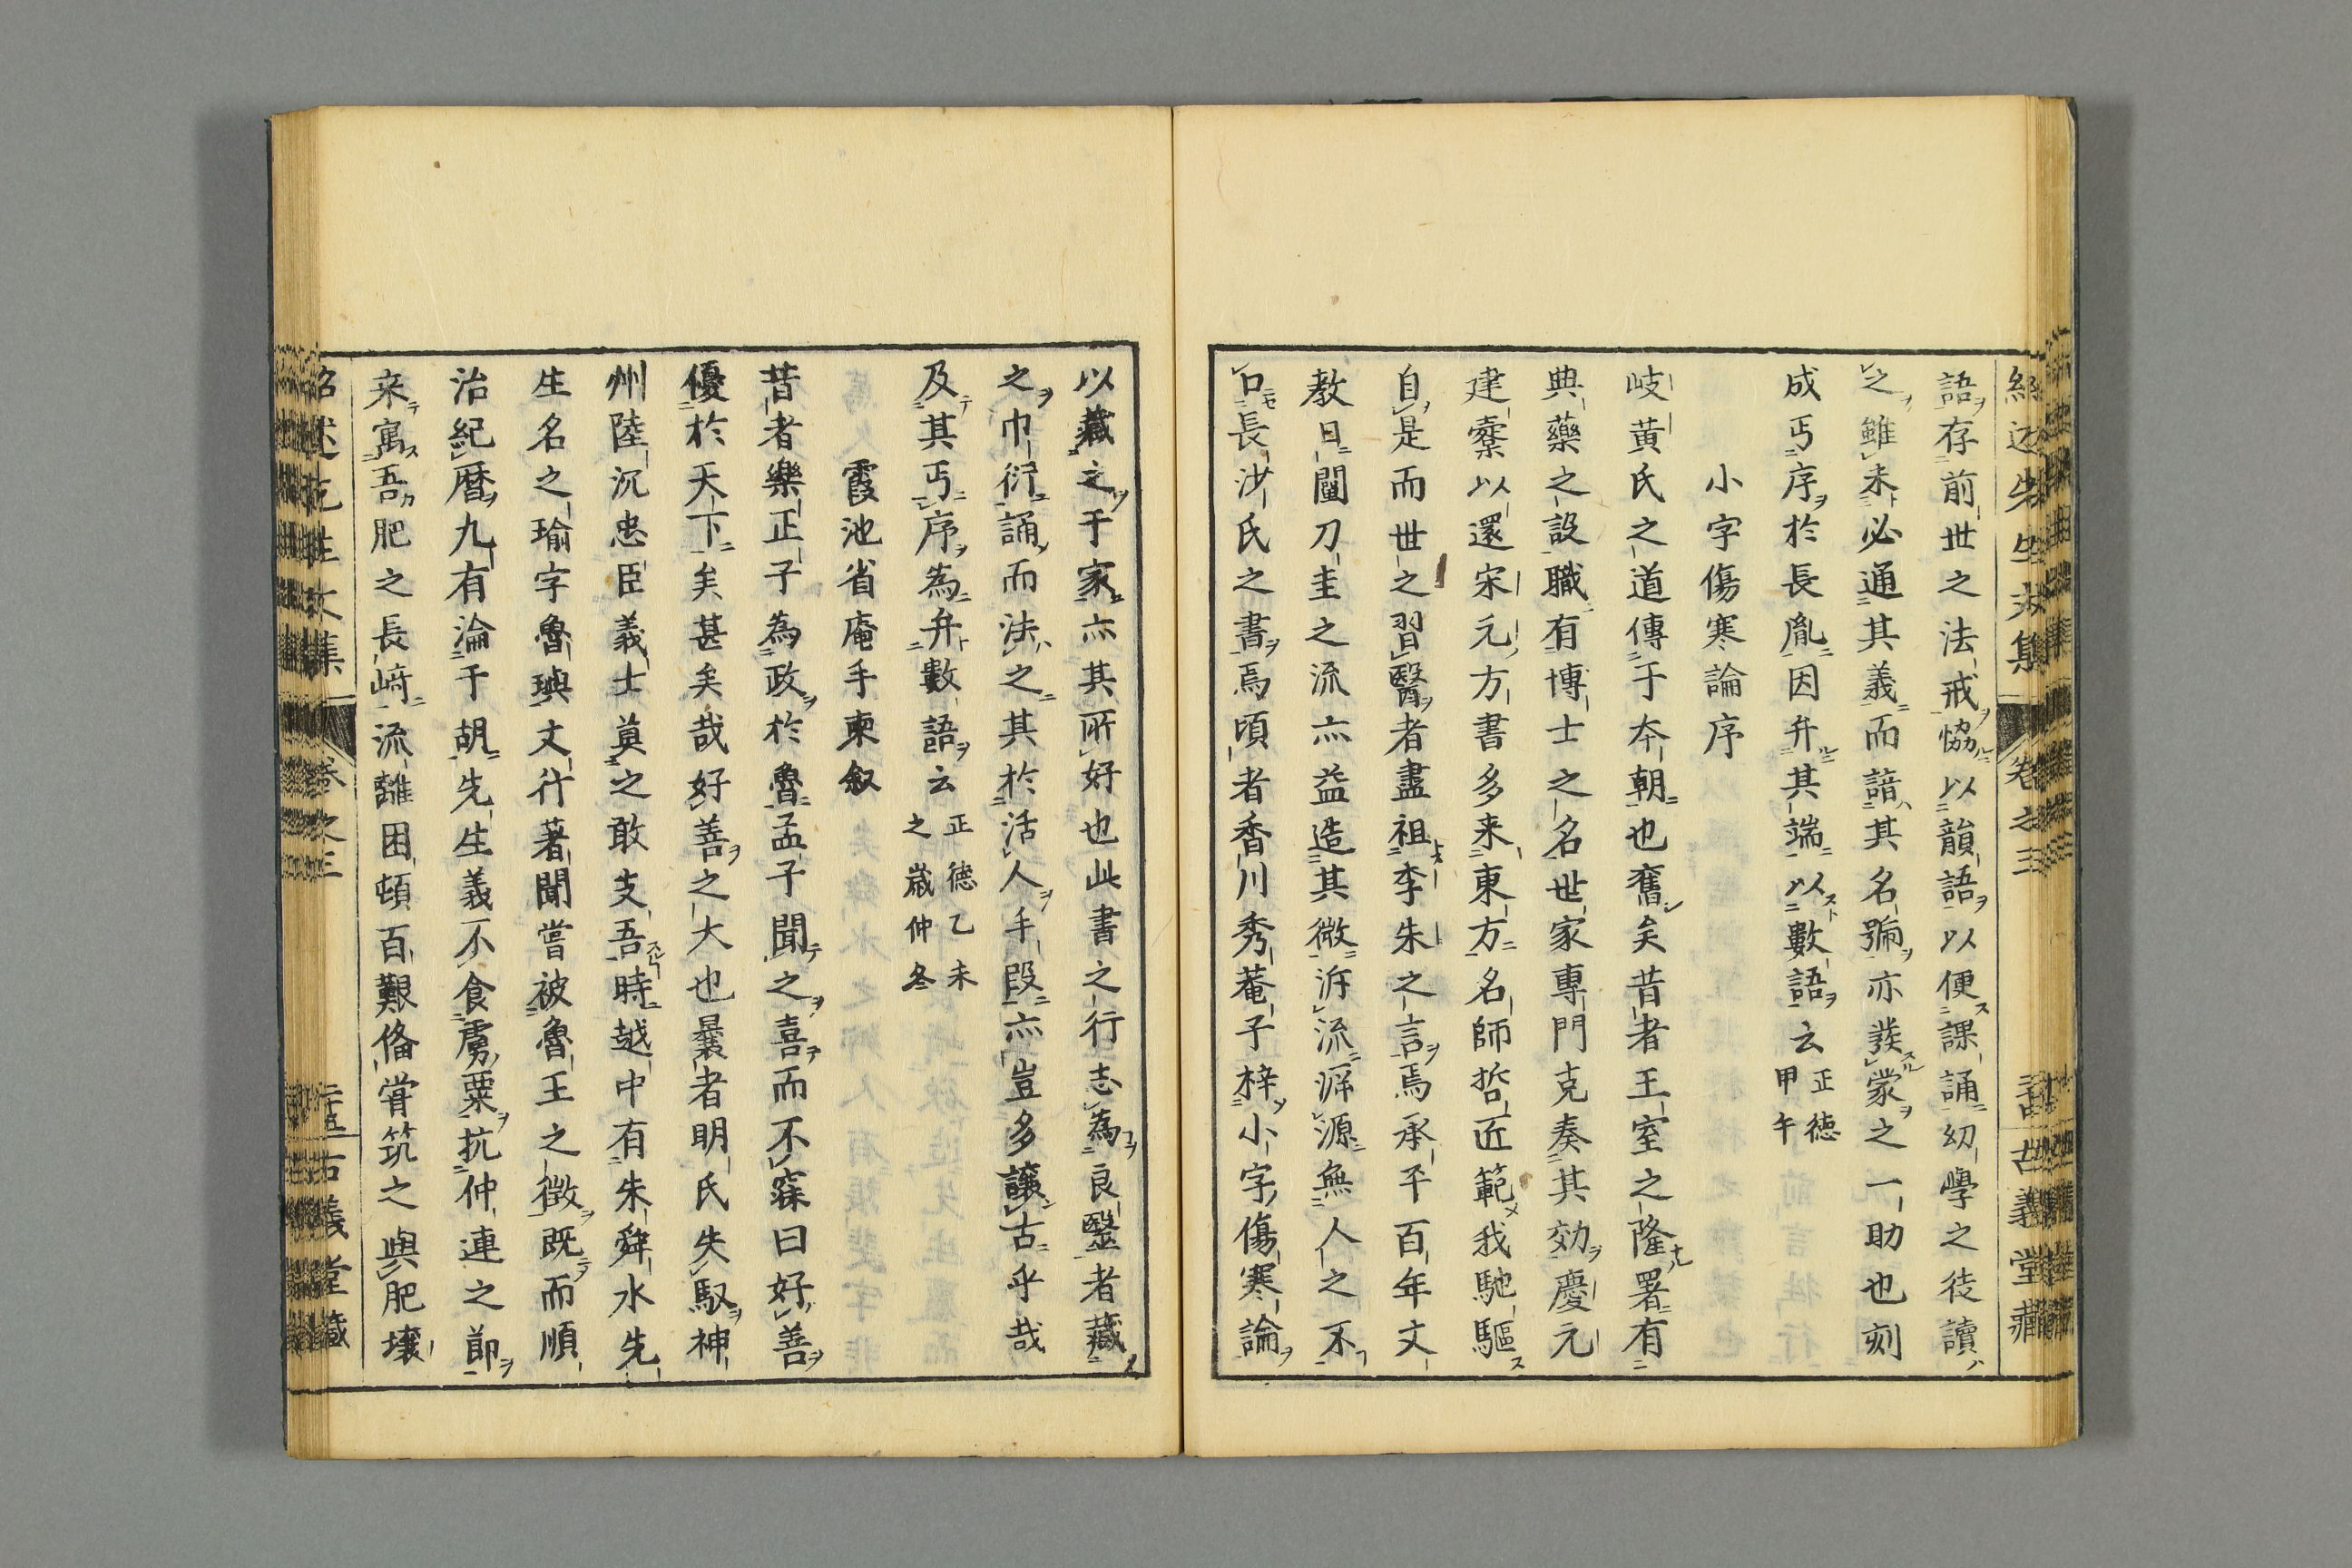 紹述先生文集
卷之三
古義堂藏
語存前世之法戒恊以韻語以便課誦幼學之徒讀
之雖未必通其義而諳其名號亦發蒙之一助也刻
成丐序於長胤因弁其端以數語云正徳
甲午
小字傷寒論序
岐黄氏之道傳于夲朝也舊矣昔者王室之隆署有
典藥之設職有博士之名世家專門克奏其効慶元
建櫜以還宋元方書多来東方名師哲匠範我馳驅
自是而世之習醫者盡祖李朱之言焉承平百年文
教日闡刀圭之流亦益造其微泝流泝源無人之不
口長沙氏之書焉頃者香川秀菴子梓小字傷寒論
以藏之于家亦其所好也此書之行志為良醫者藏
之巾衍誦而法之其於活人手段亦豈多讓古乎哉
及其丐序為弁數語云正徳乙未
之歳仲冬
霞池省庵手柬叙
昔者樂正子為政於魯孟子聞之喜而不寐曰好善
優於天下矣甚矣哉好善之大也曩者明氏失馭神
州陸沉忠臣義士莫之敢支吾時越中有朱舜水先
生名之瑜字魯璵文行著聞嘗被魯王之徴既而順
治紀暦九有淪于胡先生義不食虜粟抗仲連之節
来寓吾肥之長﨑流離困頓百艱俻甞筑之與肥壌
紹述先生文集
卷之三
二十五
古義堂藏